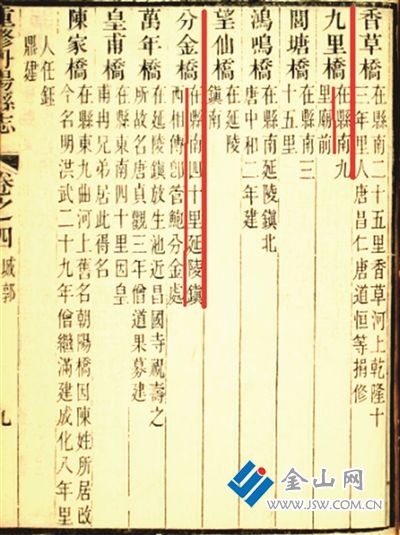 香草橋 在縣南二十五里香草河上乾隆十
三年里人唐昌仁唐道恒等捐修
九里橋 在縣南九
里廟前
塘橋 在縣南三
十五里
鴻鳴橋 在縣南延陵鎮北
唐中和二年建
望仙橋 在延陵
鎮南
分金橋 在縣南四十里延陵鎮
西相傳即管鮑分金處
萬年橋 在延陵鎮放生池近昌國寺祝壽之
所故名唐貞觀三年僧道果募建
皇甫橋 在縣東南四十里因皇
甫冉兄弟居此得名
陳家橋 在縣東九曲河上舊名朝陽橋因陳姓所居改
今名明洪武二十九年僧繼滿建成化八年里
人任鈺
鼎建
重修丹陽縣志 卷之四 城郭 九
金山网
www.JSW.COM.CN